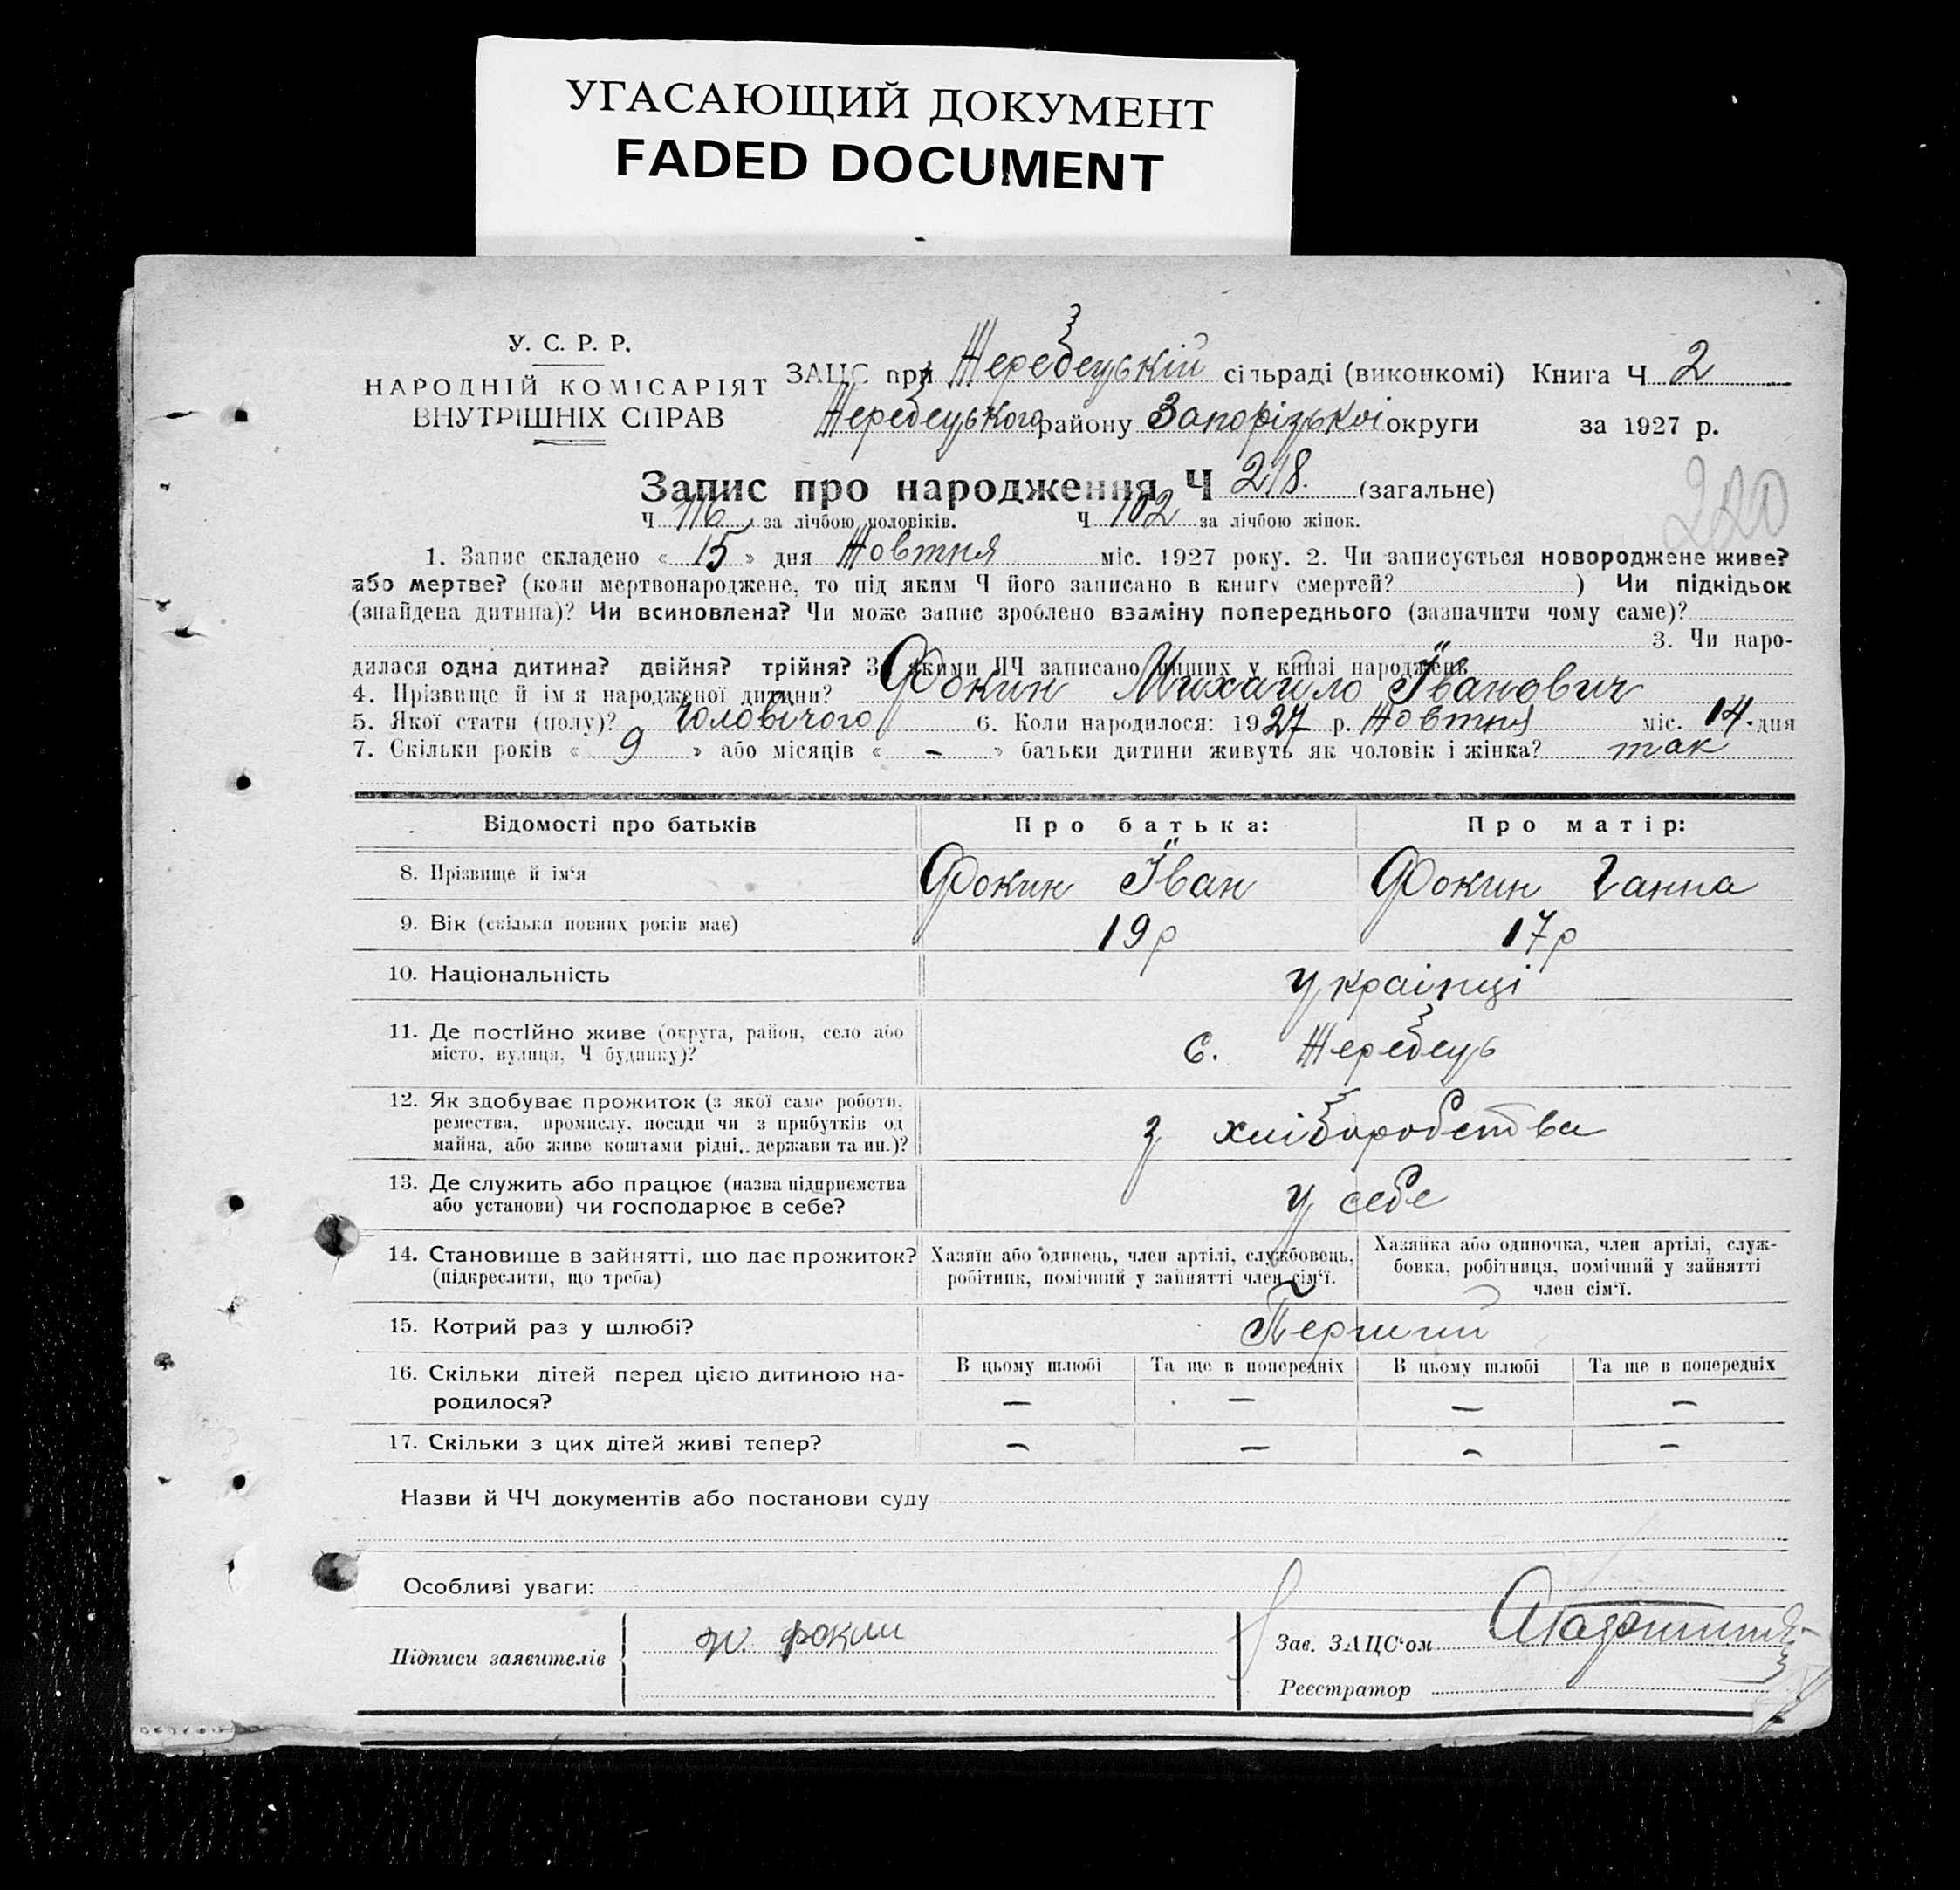 УГАСАЮЩИЙ ДОКУМЕНТ
FADED DOCUMENT
У. С. Р. Р.
НАРОДНІЙ КОМІСАРІЯТ
ВНУТРІШНІХ СПРАВ
ЗАЦС при Жеребецькій сільраді (виконкомі) Книга Ч 2
Жеребецького району Запорізької округи за 1927 р.
Запис про народження Ч 218. (загальне)
220
Ч 116 за лічбою чоловіків. Ч 102 за лічбою жінок.
1. Запис складено « 15 » дня Жовтня міс. 1927 року. 2. Чи записується новороджене живе?
або мертве? (коли мертвонароджене, то під яким Ч його записано в книгу смертей? ) Чи підкідьок
(знайдена дитина)? Чи всиновлена? Чи може запис зроблено взаміну попереднього (зазначити чому саме)?
3. Чи наро-
дилася одна дитина? двійня? трійня? З якими ЧЧ записано инших у книзі народжень
4. Прізвище й ім'я народженої дитини? Фокин Михайло Іванович
5. Якої стати (полу)? Чоловічого 6. Коли народилося: 1927 р. Жовтня міс. 14. дня
7. Скільки років « 9 » або місяців « – » батьки дитини живуть як чоловік і жінка? так
Відомості про батьків Про батька: Про матір:
8. Прізвище й ім'я Фокин Іван Фокин Ганна
9. Вік (скільки повних років має) 19р 17р
10. Національність українці
11. Де постійно живе (округа, район, село або
місто, вулиця, Ч будинку)? с. Жеребець
12. Як здобуває прожиток (з якої саме роботи,
ремества, промислу, посади чи з прибутків од
майна, або живе коштами рідні, держави та ин.)? з хліборобства
13. Де служить або працює (назва підприємства
або установи) чи господарює в себе? у себе
14. Становище в зайнятті, що дає прожиток?
(підкреслити, що треба)
Хазяїн або одинець, член артілі, службовець,
робітник, помічний у зайнятті член сім'ї.
Хазяйка або одиночка, член артілі, служ-
бовка, робітниця, помічний у зайнятті
член сім'ї.
15. Котрий раз у шлюбі? Перший
16. Скільки дітей перед цією дитиною на-
родилося?
В цьому шлюбі Та ще в попередніх В цьому шлюбі Та ще в попередніх
– – – –
17. Скільки з цих дітей живі тепер? – – – –
Назви й ЧЧ документів або постанови суду
Особливі уваги:
Підписи заявителів фокин
Зав. ЗАЦС'ом
Реєстратор